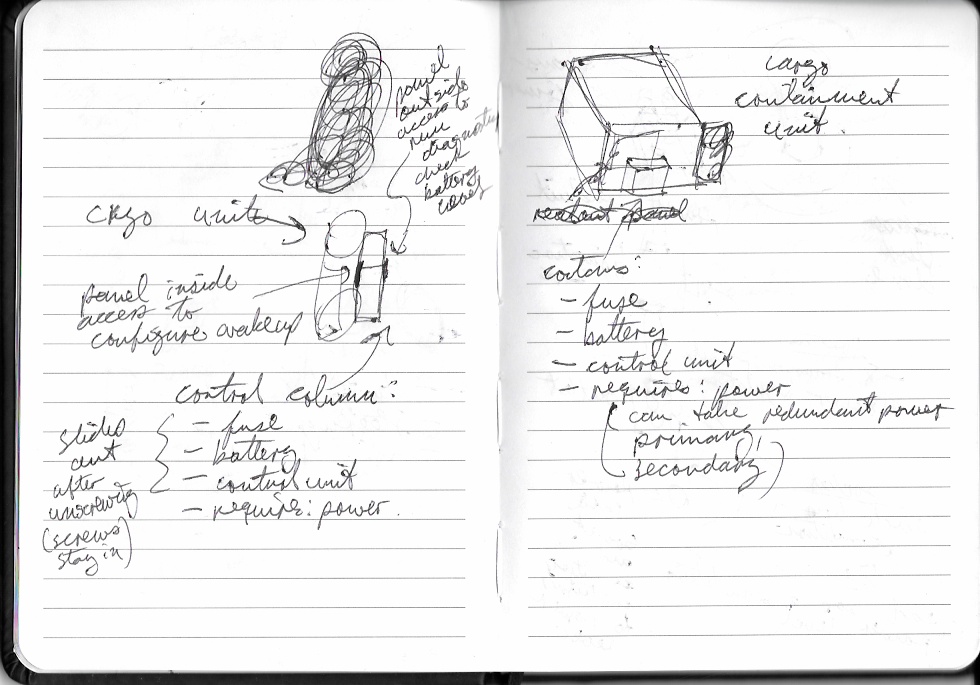 panel
outside
access to
run
diagnostics
check
battery
cryo unit
panel inside
access to
configure wakeup
control column:
slides
out
after
unscrewing
(screws
stay in)
- fuse
- battery
- control unit
- require: power.
cargo
containment
unit.
panel
contains:
- fuse
- battery
- control unit
- requires: power
(can take redundant power
primary,
secondary)